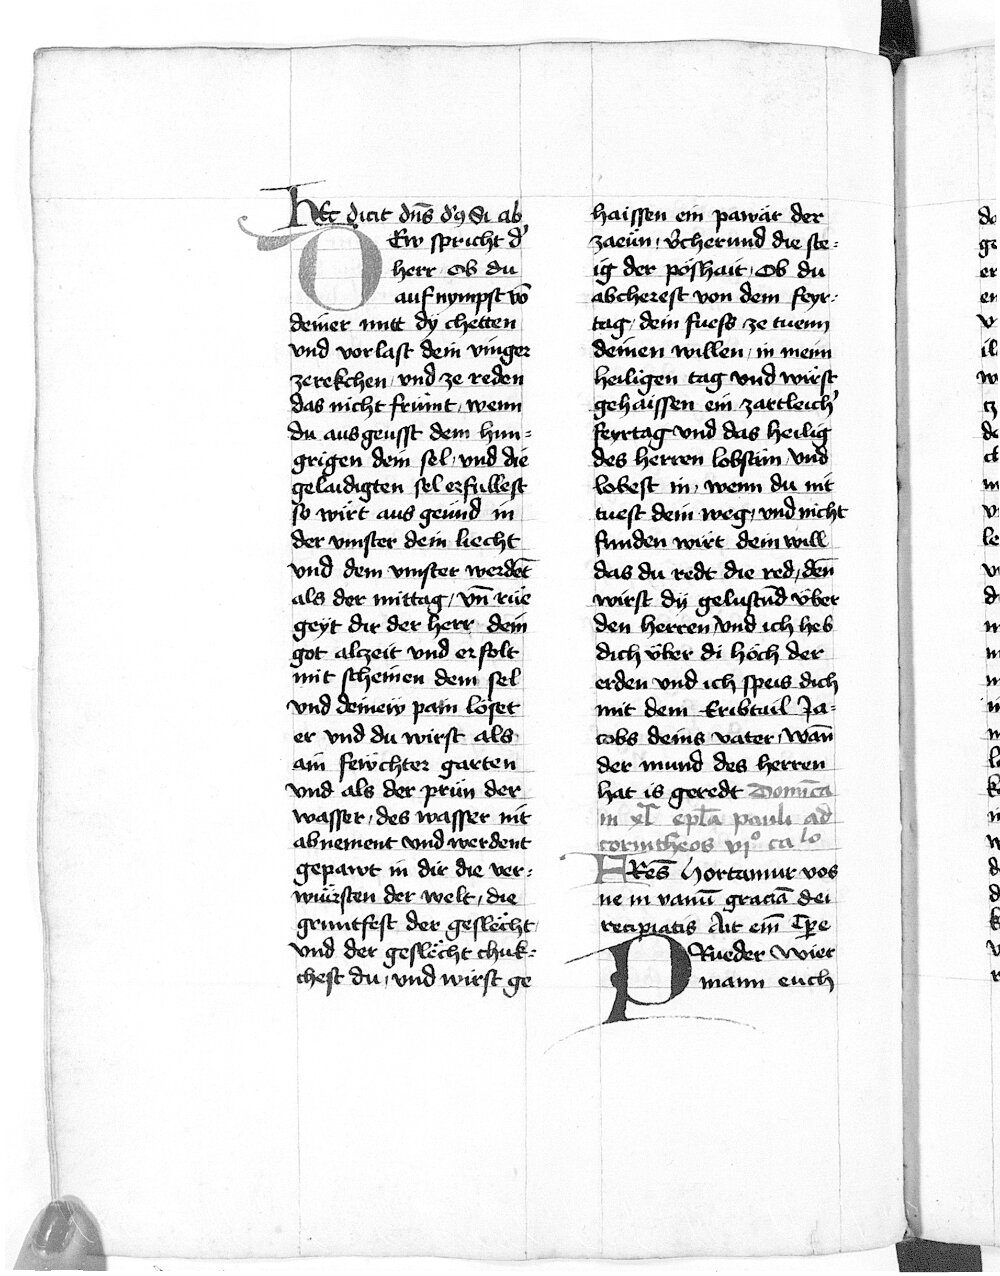 hec dicit dn̄s d's Si ab
DEw spricht d'
herr Ob du
auf nympst vō
deiner mitt dy chetten
vnd vorlast dein vinger
zerekchen, vnd ze reden
das nicht frumt, wenn
du ausgeusst dem hun-
grigen dein sel, vnd die
gelaidigten sel erfullest
so wirt aus geund in
der vinster dein liecht
vnd dein vinster werdēt
als der mittag, vn̄ rūe
geyt dir der herr dein
got alczeit vnd erfolt
mit scheinen dein sel
vnd deinew pain löset
er vnd du wirst als
ain fewchter garten
vnd als der prün der
wasser, des wasser nit
abnement vnd werdent
gepawt in dir die ver-
würsten der welt, die
gruntfest der geslëcht
vnd der geslëcht chuk-
chest du, vnd wirst ge
haissen ein pawär der
zaeün, v̈cherund die ste-
ig der poshait, Ob du
abcherest von dem feyr-
tag, dein fuess ze tuenn
deinen willen, in meim
heiligen tag vnd wirst
gehaissen ein zartleich'
feyrtag vnd das heilig
des herren lobsam, vnd
lobest in, wenn du nit
tuest dein weg, vnd nicht
funden wirt dein will
das du redt die red, dēn
wirst dy gelustūd v̈ber
den herren, vnd ich heb
dich v̈ber di höch der
erden vnd ich speis dich
mit dem Eribtail Ja-
cobs deins vater, wān
der mund des herren
hat is geredt Domīca
in xl epl̄a pauli ad
corintheos vjo calo
FRes̄ Hortamur vos
ne in vanū graciā dei
recipiatis Ait eiī Tp̄e
PRueder Wier
mann euch